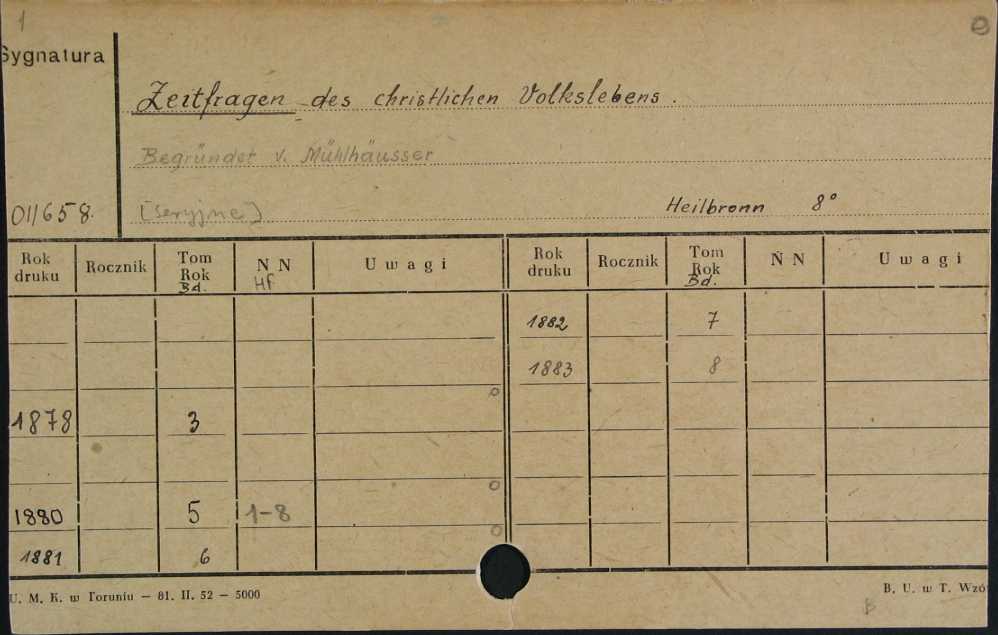 1
e
Sygnatura
Zeitfragen des christlichen Volkslebens.
Begründet v. Mühlhäusser
01/658. [seryjne] Heilbronn 8°
Rok druku Rocznik Tom Rok Bd. N N Hf Uwagi Rok druku Rocznik Tom Rok Bd. N N Uwagi
1882 7
1883 8
1878 3
1880 5 1-8
1881 6
U. M. K. w Toruniu — 81. II. 52 — 5000 B. U. w T. Wzó
B